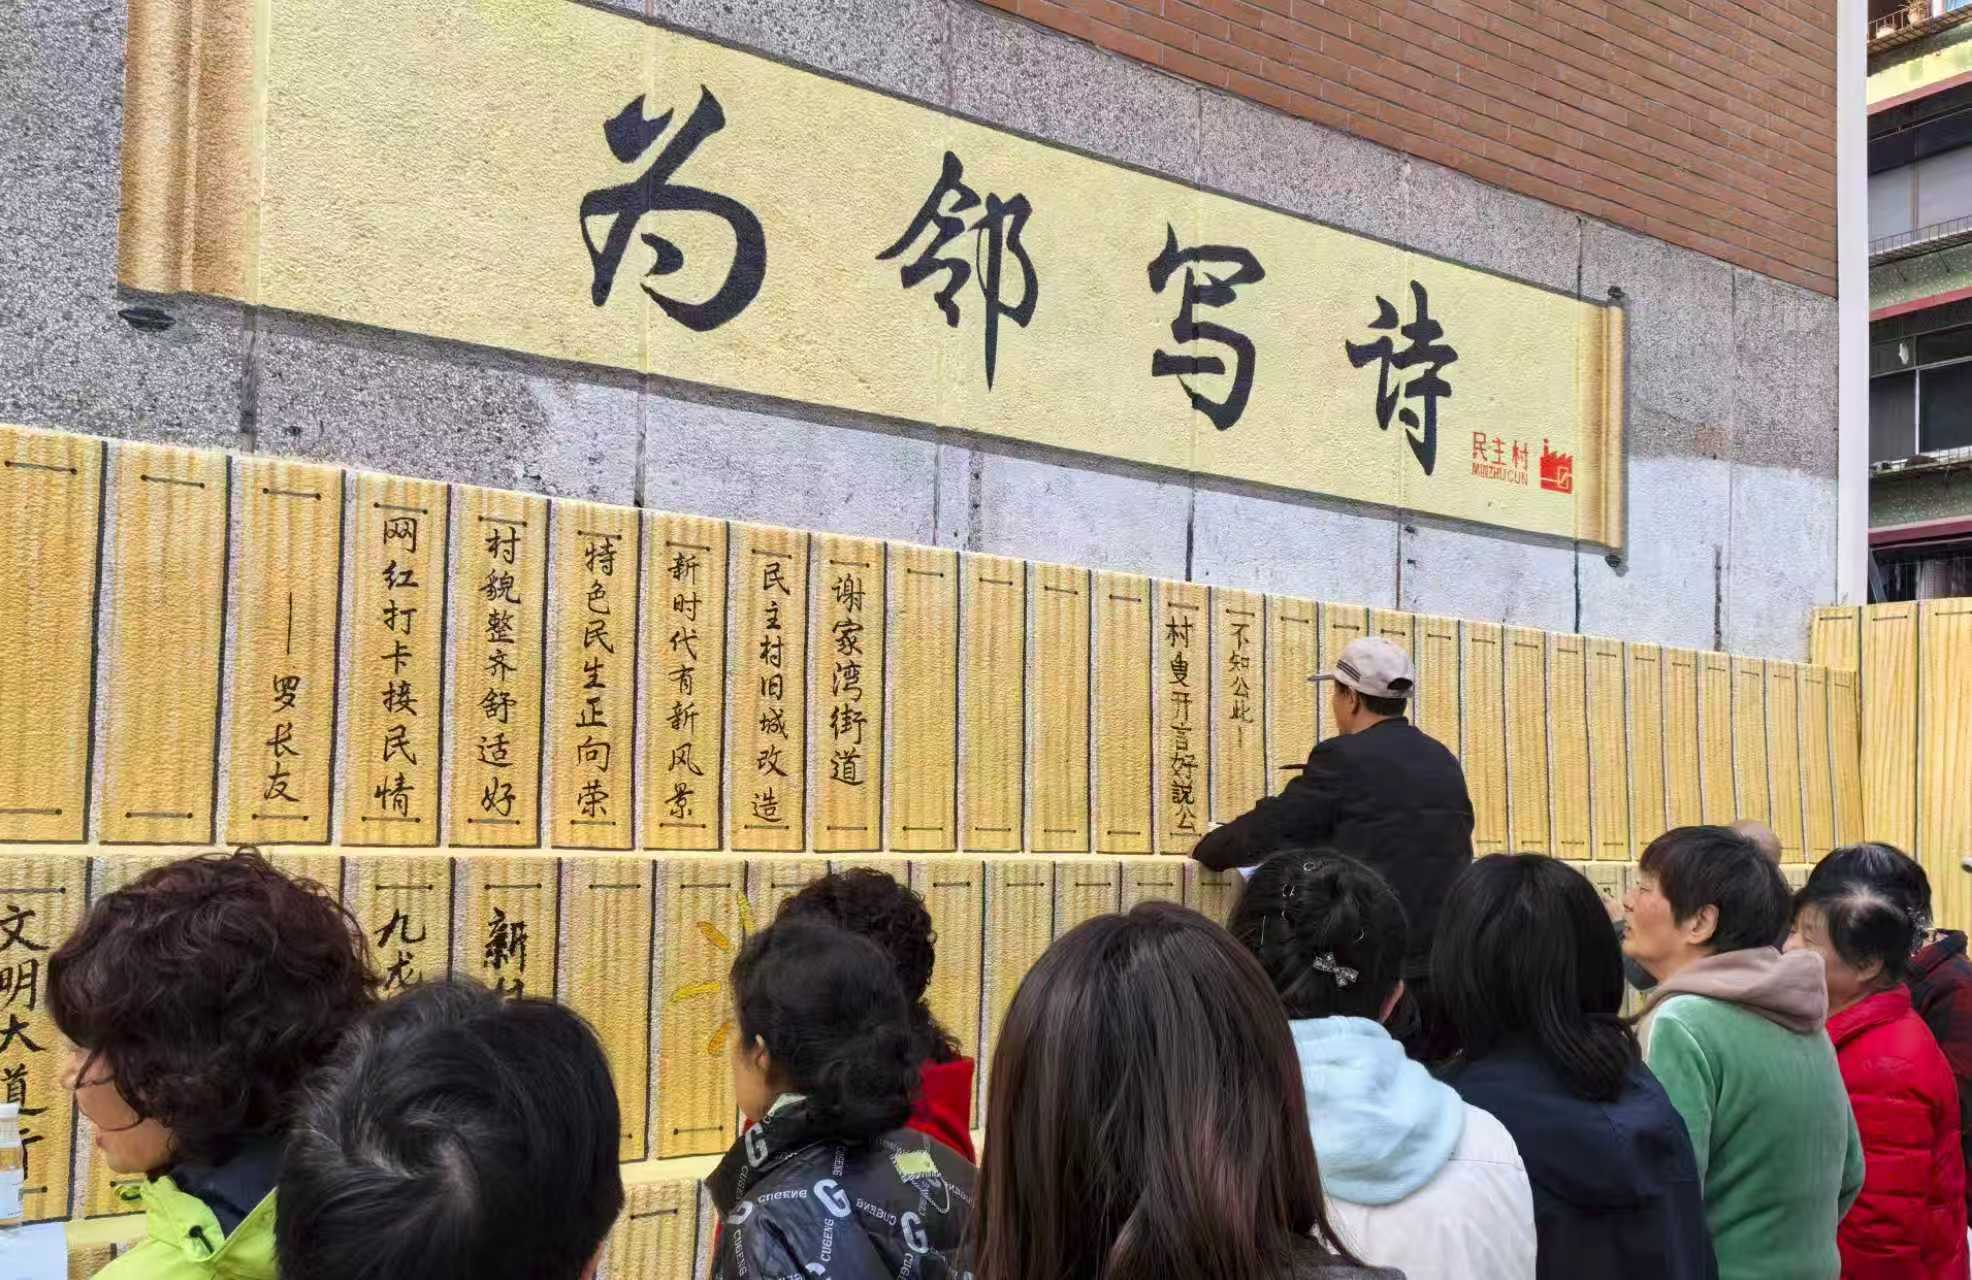 为邻写诗
民主村
MINZHUCUN
不知公此
村叟开言好說公
谢家湾街道
民主村旧城改造
新时代有新风景
特色民生正向荣
村貌整齐舒适好
网红打卡接民情
——罗长友
新
九龙
文明大道
CUGENG